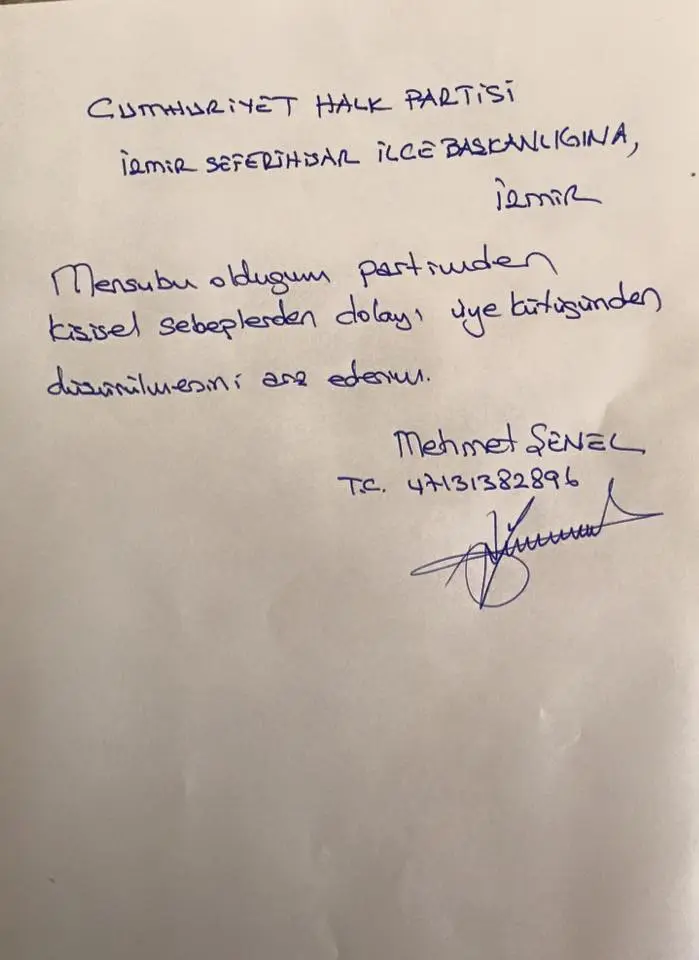 CUMHURİYET HALK PARTİSİ
İZMİR SEFERİHİSAR İLÇE BAŞKANLIGINA,
İZMİR
Mensubu oldugum partimden
kişisel sebeplerden dolayı üye kütüğünden
düşürülmesini arz ederim.
Mehmet ŞENEL
T.C. 47131382896